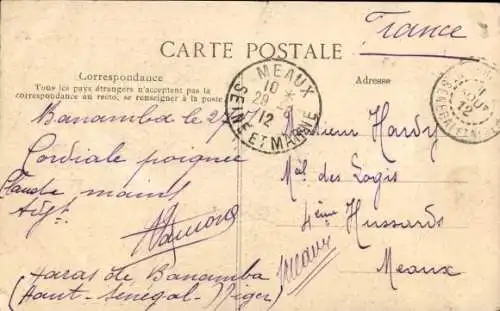 France
CARTE POSTALE
Correspondance
Tous les pays étrangers n'acceptent pas la
correspondance au recto, se renseigner à la poste
Adresse
MEAUX
10
29
12
SEINE ET MARNE
12
Banamba le
Cordiale poignée
de mains
Haras de Banamba
(Haut-Sénégal-Niger)
Monsieur Hardy
Mal des Logis
4ème Hussards
Meaux
Meaux